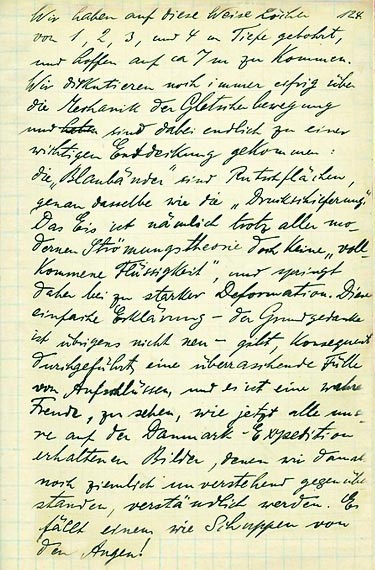 Wir haben auf diese Weise Löcher 124.
von 1, 2, 3, und 4 m Tiefe gebohrt,
und hoffen auf ca 7 m zu kommen.
Wir diskutieren noch immer eifrig über
die Mechanik der Gletscherbewegung
und haben sind dabei endlich zu einer
wichtigen Entdeckung gekommen:
die „Blaubänder" sind Rutschflächen,
genau dasselbe wie die „Druckschieferung".
Das Eis ist nämlich trotz aller mo-
dernen Strömungstheorie doch keine „voll-
kommene Flüssigkeit", und springt
daher bei zu starker Deformation. Diese
einfache Erklärung – der Grundgedanke
ist übrigens nicht neu – gibt, konsequent
durchgeführt, eine überraschende Fülle
von Aufschlüssen, und es ist eine wahre
Freude, zu sehen, wie jetzt alle unse-
re auf der Danmark-Expedition
erhaltenen Bilder, denen wir damals
noch ziemlich unverstehend gegenüber
standen, verständlich werden. Es
fällt einem wie Schuppen von
den Augen!